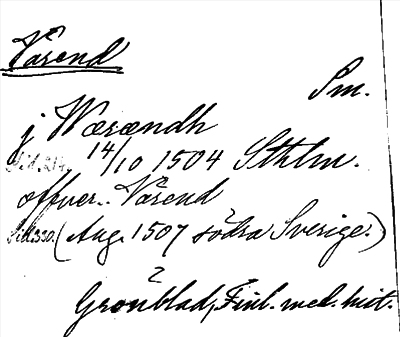 Värend
Sm.
j Wærændh
Sid. 214. 14/10 1504 Sthlm.
offver.. Värend
Sid. 330. (Aug. 1507 södra Sverige.)
2
Grönblad, Finl. med. hist.